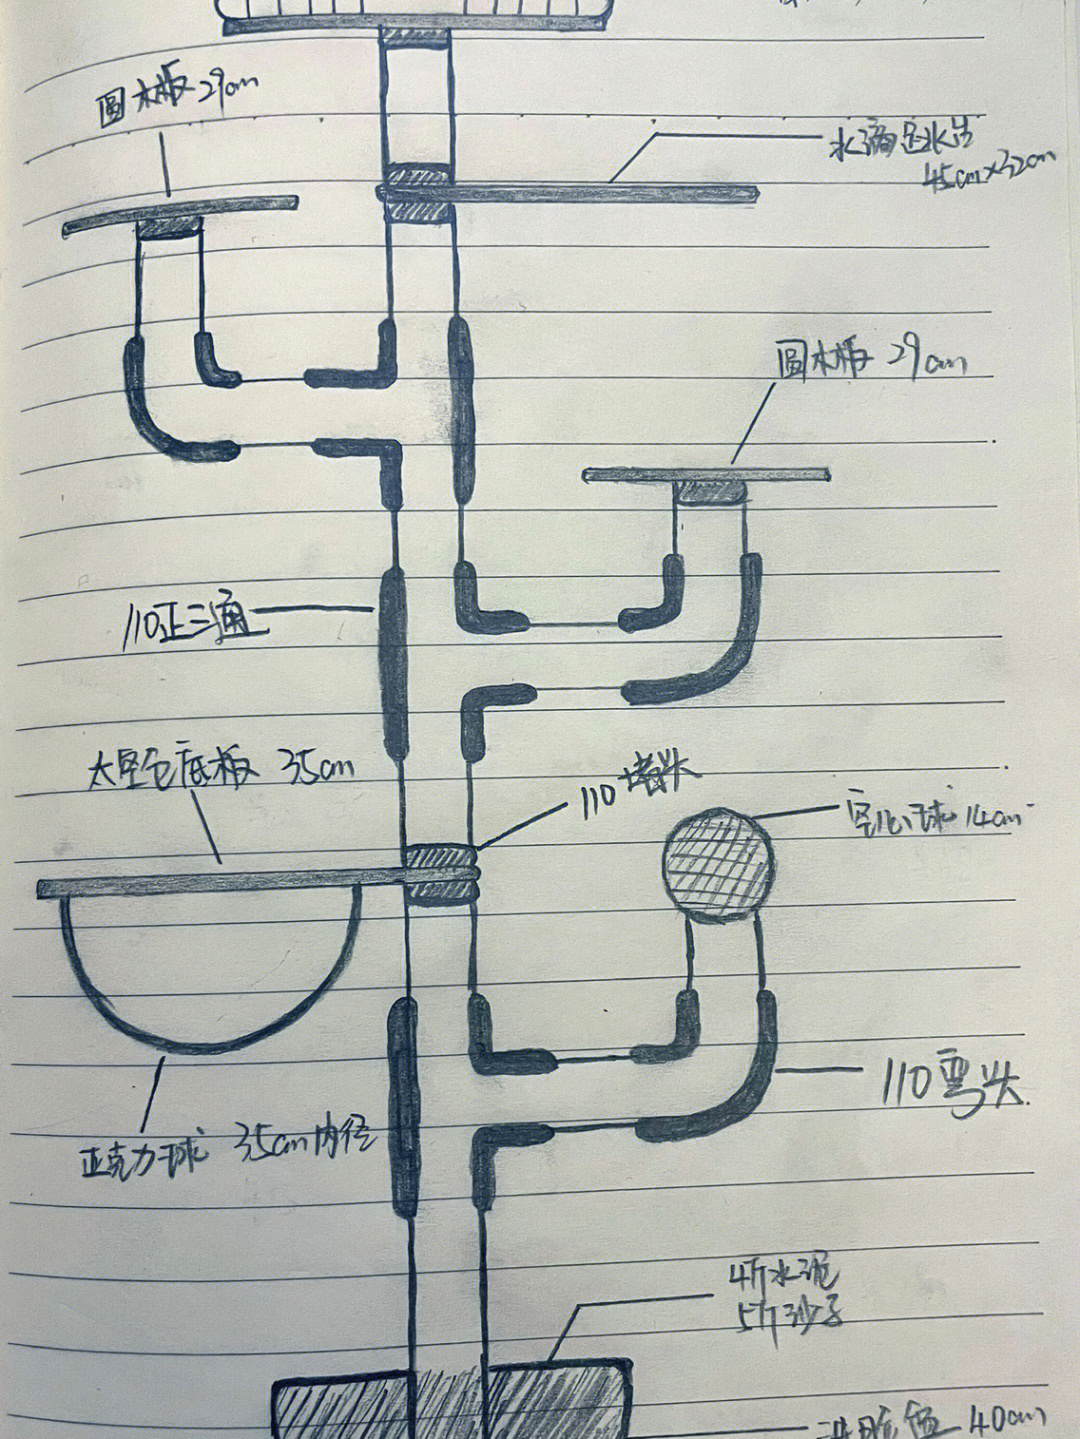 圆木板 29cm
水滴
45cm×32cm
圆木板 29cm
110正三通
太空仓底板 35cm
110 堵头
空心球 14cm
亚克力球 35cm内径
110弯头
4斤水泥
5斤沙子
洗脸盆 40cm